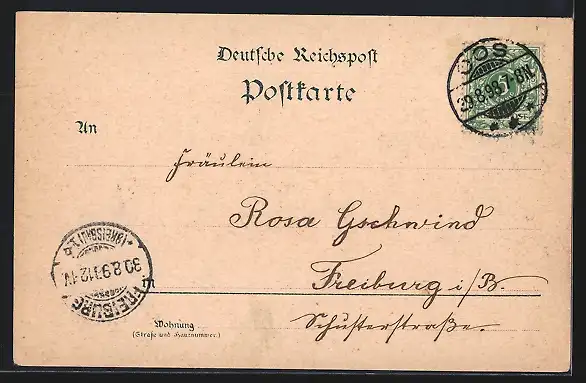 Deutsche Reichspost
Postkarte
OOS
29.8.98.7-8N
5
An
Fräulein
Rosa Gschwind
in
Freiburg i/B.
Schusterstraße.
Wohnung
(Straße und Hausnummer.)
FREIBURG
*(BREISGAU)1.
30.8.9